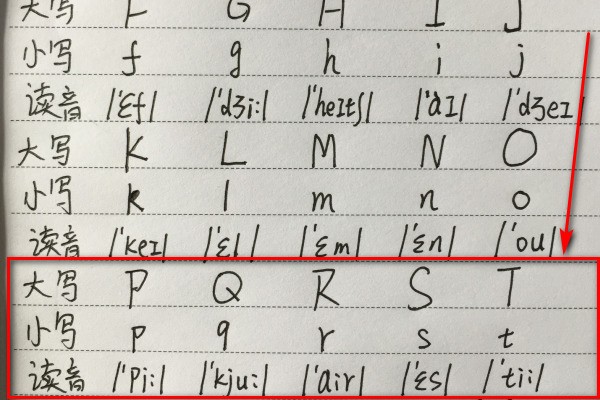 大写 F G H I J
小写 f g h i j
读音 /'ɛf/ /'dʒi:/ /'heɪtʃ/ /'aɪ/ /'dʒeɪ/
大写 K L M N O
小写 k l m n o
读音 /'keɪ/ /'ɛl/ /'ɛm/ /'ɛn/ /'ou/
大写 P Q R S T
小写 p q r s t
读音 /'Pi:/ /'kju:/ /'air/ /'ɛs/ /'ti:/